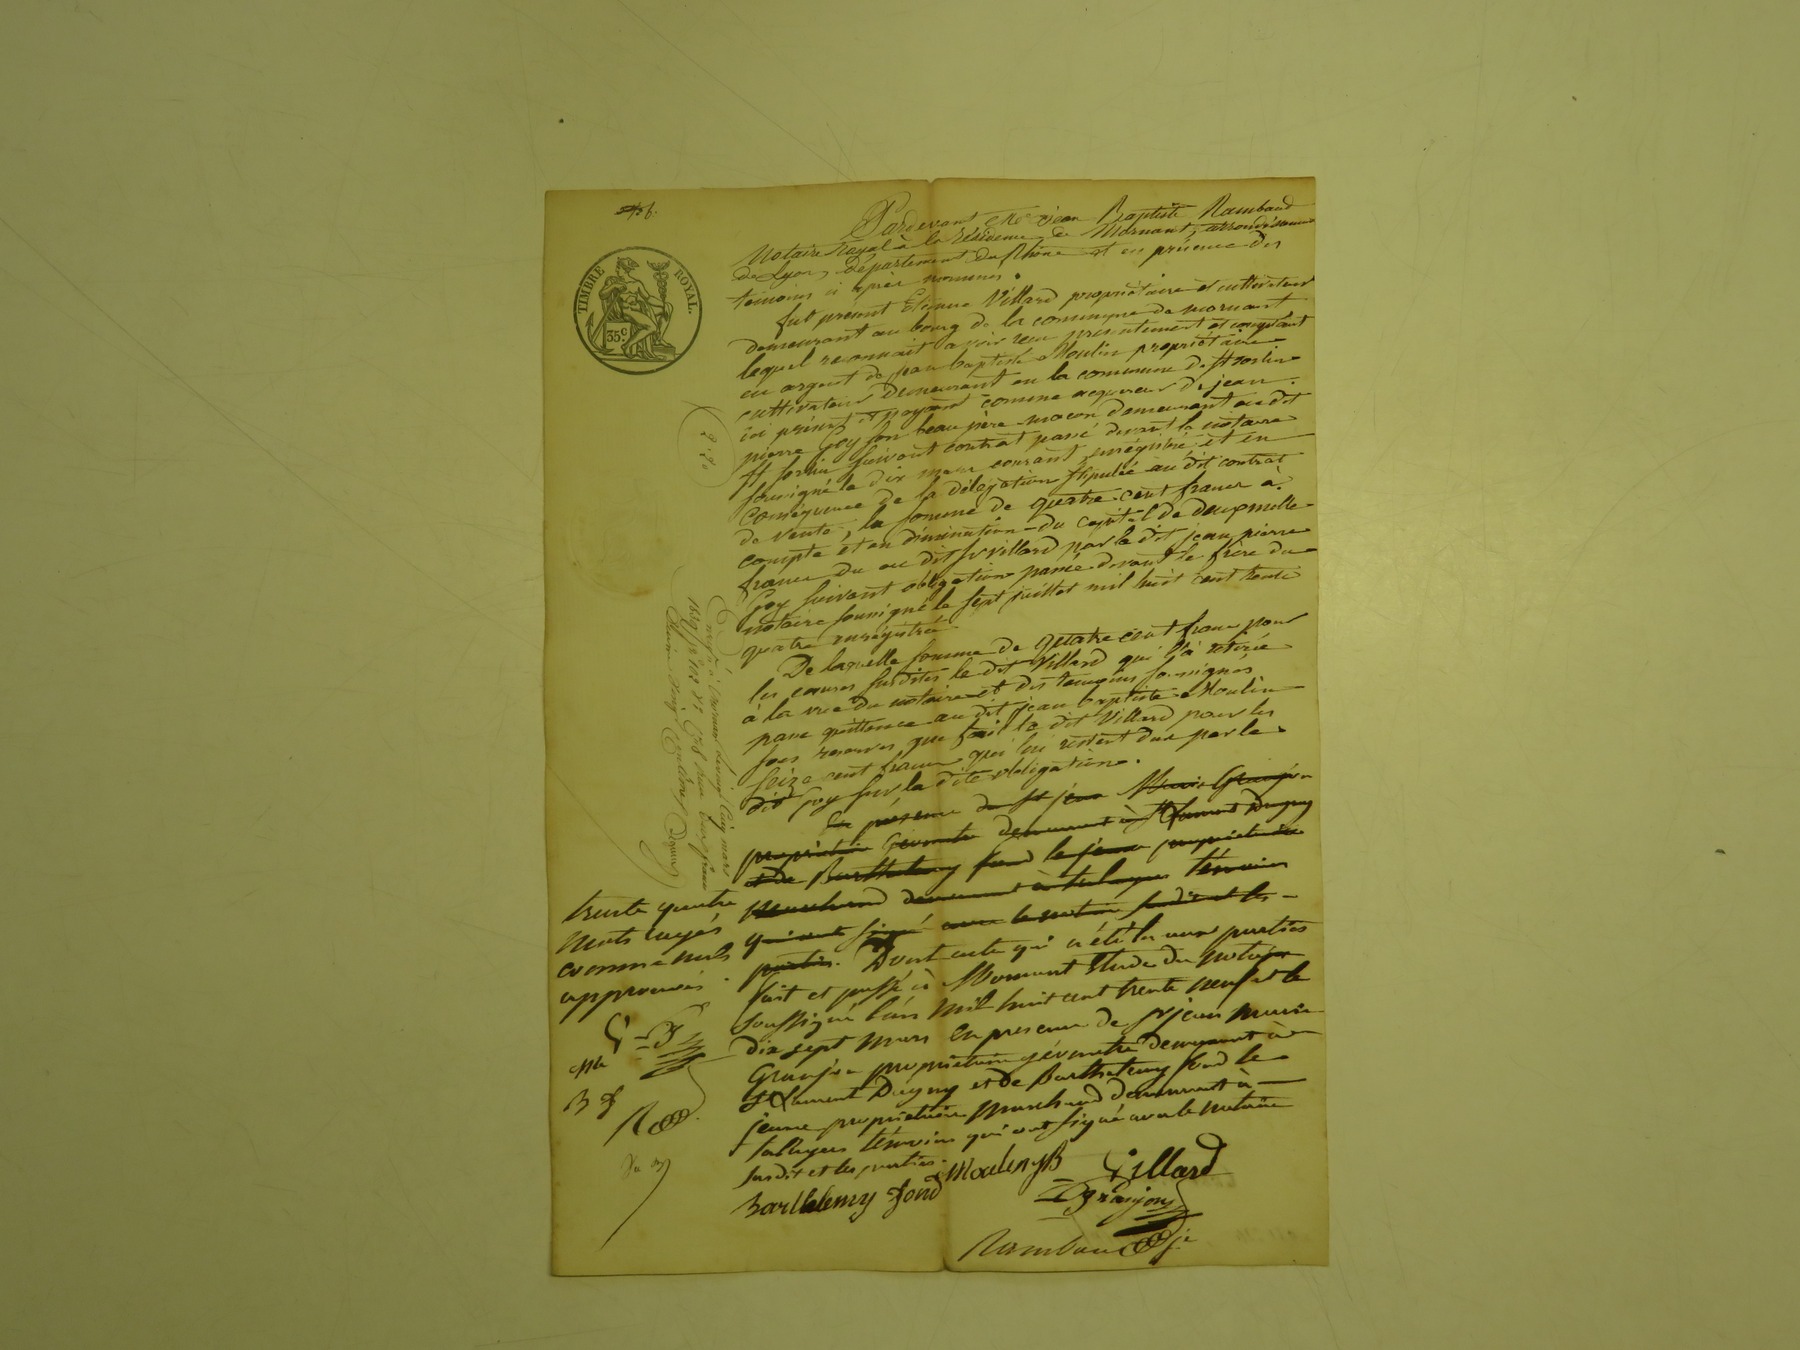 TIMBRE ROYAL
35 c.
Pardevant Me Jean Baptiste Rambaud
Notaire Royal à la résidence de Mornant, arrondissement
de Lyon, département du Rhône et en présence des
témoins ci après nommés.
fut présent Etienne Villard propriétaire et cultivateur
demeurant au bourg de la commune de mornant
lequel reconnait avoir reçu présentement et comptant
en argent de jean baptiste Moulin propriétaire
cultivateur demeurant en la commune de St Sorlin
ici présent et payant comme acquéreur de jean
pierre Goy son beau père macon demeurant au dit
St Sorlin suivant contrat passé devant le notaire
soussigné le dix mars courant enregistré et en
conséquence de la délégation stipulée au dit contrat
de vente, la somme de quatre cent francs à
compte et en diminution du capital de deux mille
francs du au dit Sr Villard par le dit jean pierre
Goy suivant obligation passée devant le frère du
notaire soussigné le sept juillet mil huit cent trente
quatre enregistrée
De laquelle somme de quatre cent francs pour
les causes susdites le dit Villard qui l'a retirée
à la vue du notaire et des temoins soussignés
passe quittance au dit jean baptiste Moulin
sous reserves que fait le dit Villard pour les
seize cent francs qui lui restent dus par le
dit Goy sur la dite obligation.
En présence de Sr jean Marie Granjon
propriétaire Géometre demeurant à St Laurent Dagny
et de Barthelemy fond le jeune propriétaire
marchand demeurant à taluyers témoins
qui ont signé avec le notaire susdit et les
parties. Dont acte qui a été lu aux parties
fait et passé à Mornant Etude du notaire
soussigné l'an mil huit cent trente neuf et le
dix sept mars En presence de Sr jean marie
Granjon propriétaire géometre demeurant à
St Laurent Dagny et de Barthelemy fond le
jeune propriétaire marchand demeurant à
taluyers témoins qui ont signé avec le notaire
susdit et les parties.
Moulin JB Villard
Barthelemy fond Granjon
Rambaud
trente quatre
mots rayés
comme nuls
approuvés.